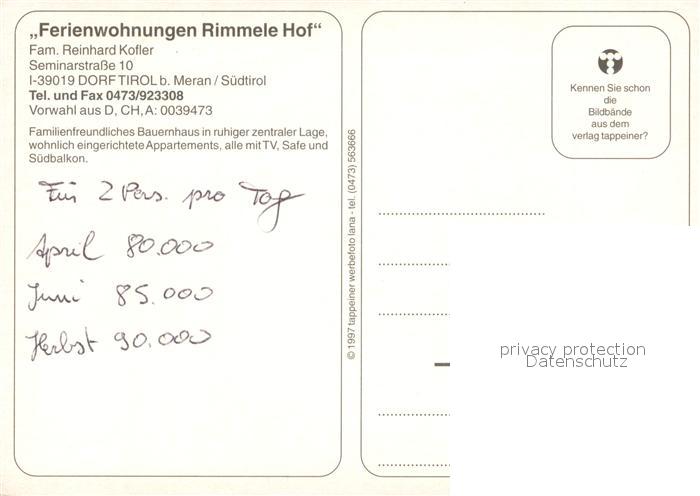 „Ferienwohnungen Rimmele Hof“
Fam. Reinhard Kofler
Seminarstraße 10
I-39019 DORF TIROL b. Meran / Südtirol
Tel. und Fax 0473/923308
Vorwahl aus D, CH, A: 0039473
Familienfreundliches Bauernhaus in ruhiger zentraler Lage,
wohnlich eingerichtete Appartements, alle mit TV, Safe und
Südbalkon.
Für 2 Pers. pro Tag
April 80.000
Juni 85.000
Herbst 90.000
© 1997 tappeiner werbefoto lana - tel. (0473) 563666
Kennen Sie schon
die
Bildbände
aus dem
verlag tappeiner?
privacy protection
Datenschutz